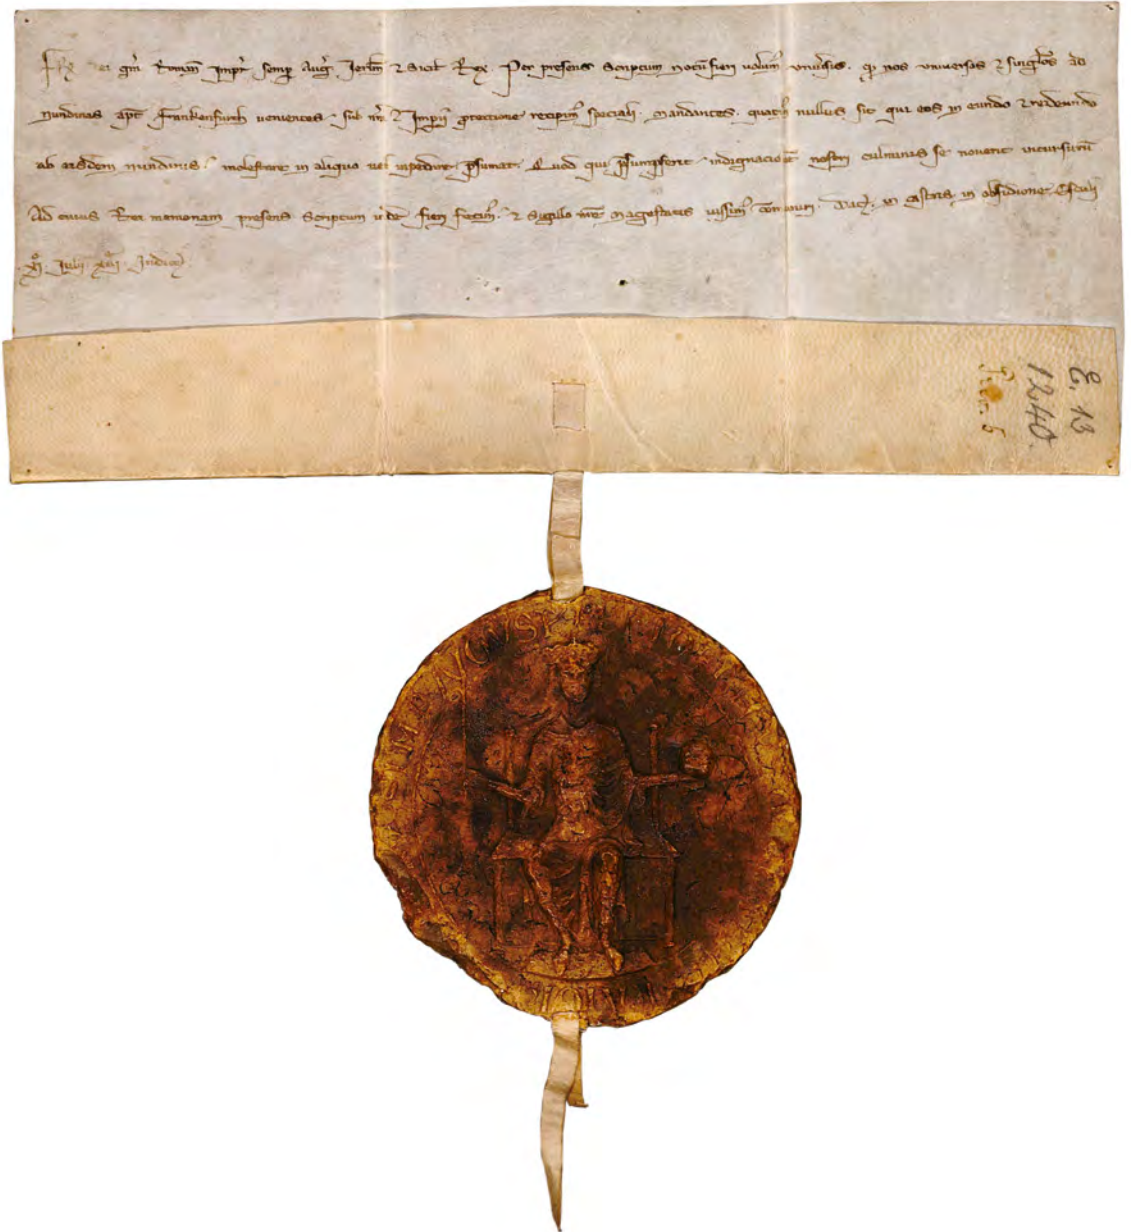 Fr. dei gr̄a Romanoꝝ Imp̄r semp Aug̃. Jerl̄m ⁊ Sicil̄ Rex. Per presens Scriptum notū fieri volum̄ vniu̾sis. qd̾ nos vniuersos ⁊ singl̾os ad
nundinas apt̾ Frankenfurth venientes. sub nr̄a ⁊ Imp̄ii protectione recipim̾ speciali. mandantes. quatin̾ nullus sit qui eos in eundo ⁊ redeundo
ab eisdem nundinis. molestare in aliquo uel inpedire p̄sumat. Quod qui p̄sumpserit. indignacioē nostri culminis se nouerit incursurū
Ad cuius Rei memoriam presens Scriptum fieri fecim̾. ⁊ Sigillo nr̄e magestatis iussim̾ com̄uniri. Dat̾. in castris in obsidione Esculi
.xi. Julii. xiii. Indict̾.
E. 13
1240.